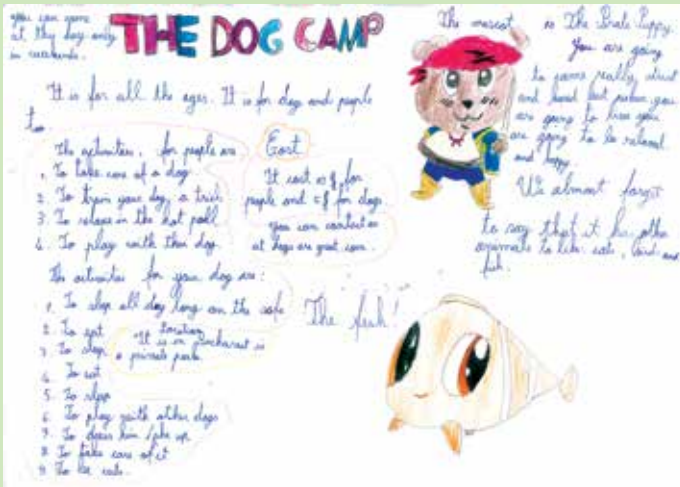 you can come
at thy dog only
in weekends.
THE DOG CAMP
It is for all the ages. It is for dogs and people
to
The activities, for people are
1. To take care of a dog
2. To train your dog a trick
3. To relaxe in the hot pool
4. To play with their dog
Cost
It cost 10 £ for
people and 5 £ for dogs
you can contact us
at dogs are great.com.
The activities for your dog are:
1. To sleep all day long on the sofa
2. To eat
3. To sleep
4. To eat
5. To sleep
6. To play with other dogs
7. To dress him / she up
8. To take care of it
9. To be cute.
Location
"It is in Bucharest in
a private park.
The mascot is The Pirate Puppy.
You are going
to come really
and
are going to
are going to be relaxed
and happy.
We almost forgot
to say that it has other
animals to like cats, birds and
fish.
The fish!